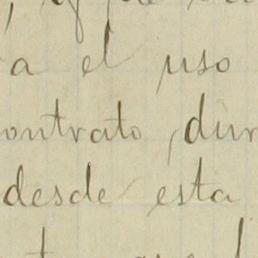 a el uso
ontrato, dur
desde esta